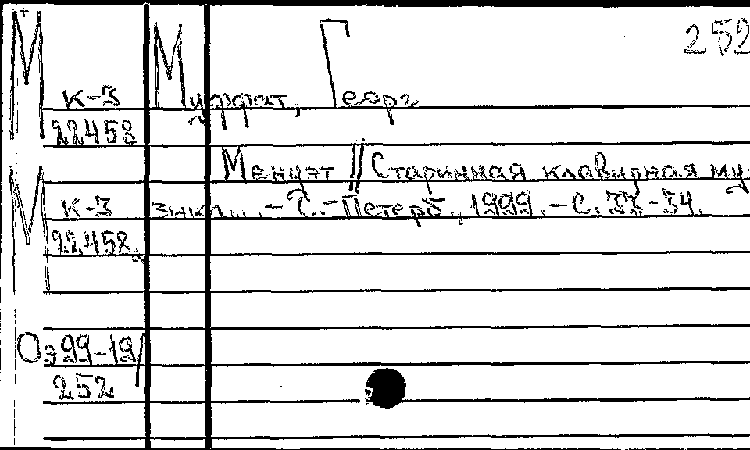 252
М К-3 22458
Муффат, Георг
Менуэт // Старинная клавирная му-
зыка... – С.-Петерб., 1999. – С. 33-34.
М К-3 22458
Оз99-19/
252